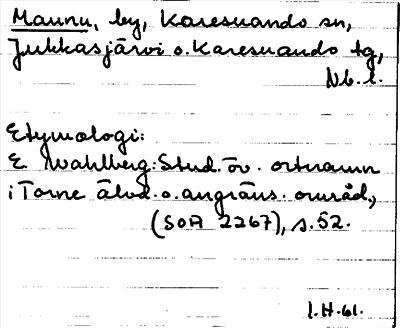 Maunu, by, Karesuando sn,
Jukkasjärvi o. Karesuando tg,
Nb. l.
Etymologi:
E Wahlberg: Stud. öv. ortnamn
i Torne älvd. o. angräns. område,
(SOA 2267), s. 52.
I. H. 61.